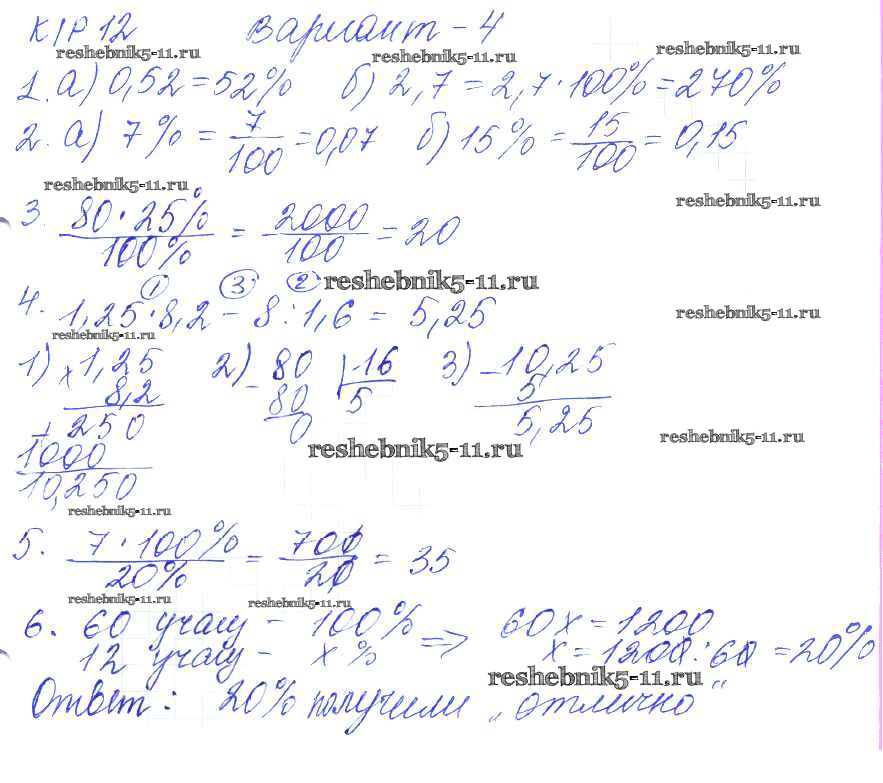 К/Р 12 Вариант - 4
reshebnik5-11.ru reshebnik5-11.ru reshebnik5-11.ru
1. а) 0,52 = 52% б) 2,7 = 2,7 · 100% = 270%
2. а) 7% = 7/100 = 0,07 б) 15% = 15/100 = 0,15
reshebnik5-11.ru reshebnik5-11.ru
3. 80 · 25% / 100% = 2000/100 = 20
① ③ ② reshebnik5-11.ru
4. 1,25 · 8,2 - 8 : 1,6 = 5,25
reshebnik5-11.ru reshebnik5-11.ru
1) × 1,25 2) - 80 | 16 3) - 10,25
8,2 80 5 5
+ 250 0 5,25
1000
10,250
reshebnik5-11.ru reshebnik5-11.ru
reshebnik5-11.ru
5. 7 · 100% / 20% = 700/20 = 35
reshebnik5-11.ru reshebnik5-11.ru
6. 60 учащ - 100% => 60x = 1200
12 учащ - x % x = 1200 : 60 = 20%
reshebnik5-11.ru
Ответ: 20% получили „отлично"